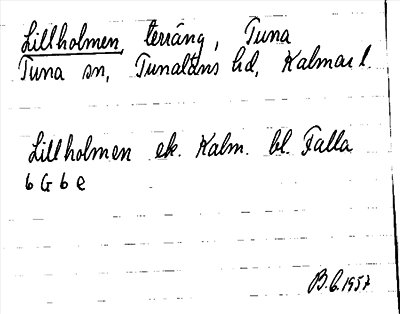 Lillholmen, terräng, Tuna
Tuna sn, Tunaläns hd, Kalmar l.
Lillholmen ek. Kalm. bl. Falla
6 G 6 e
B.C. 1957